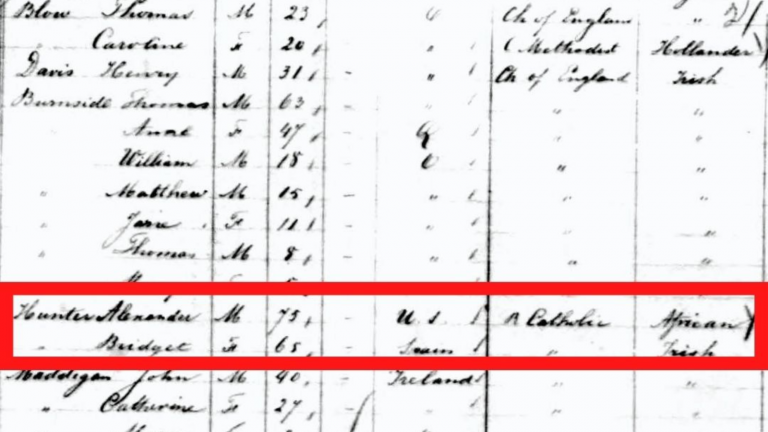 Blow Thomas M 23 O Ch of England "
" Caroline F 20 " Methodist Hollander
Davis Henry M 31 - " Ch of England Irish
Burnside Thomas M 63 - " " "
Anne F 47 - " "
William M 18 - O " "
" Matthew M 15 - " " "
" Jane F 11 - " " "
" Thomas M 8 - " " "
Hunter Alexander M 75 - U S R Catholic African
" Bridget F 65 - Irish
Maddigan John M 40 - Ireland " "
" Catherine F 27 " " "